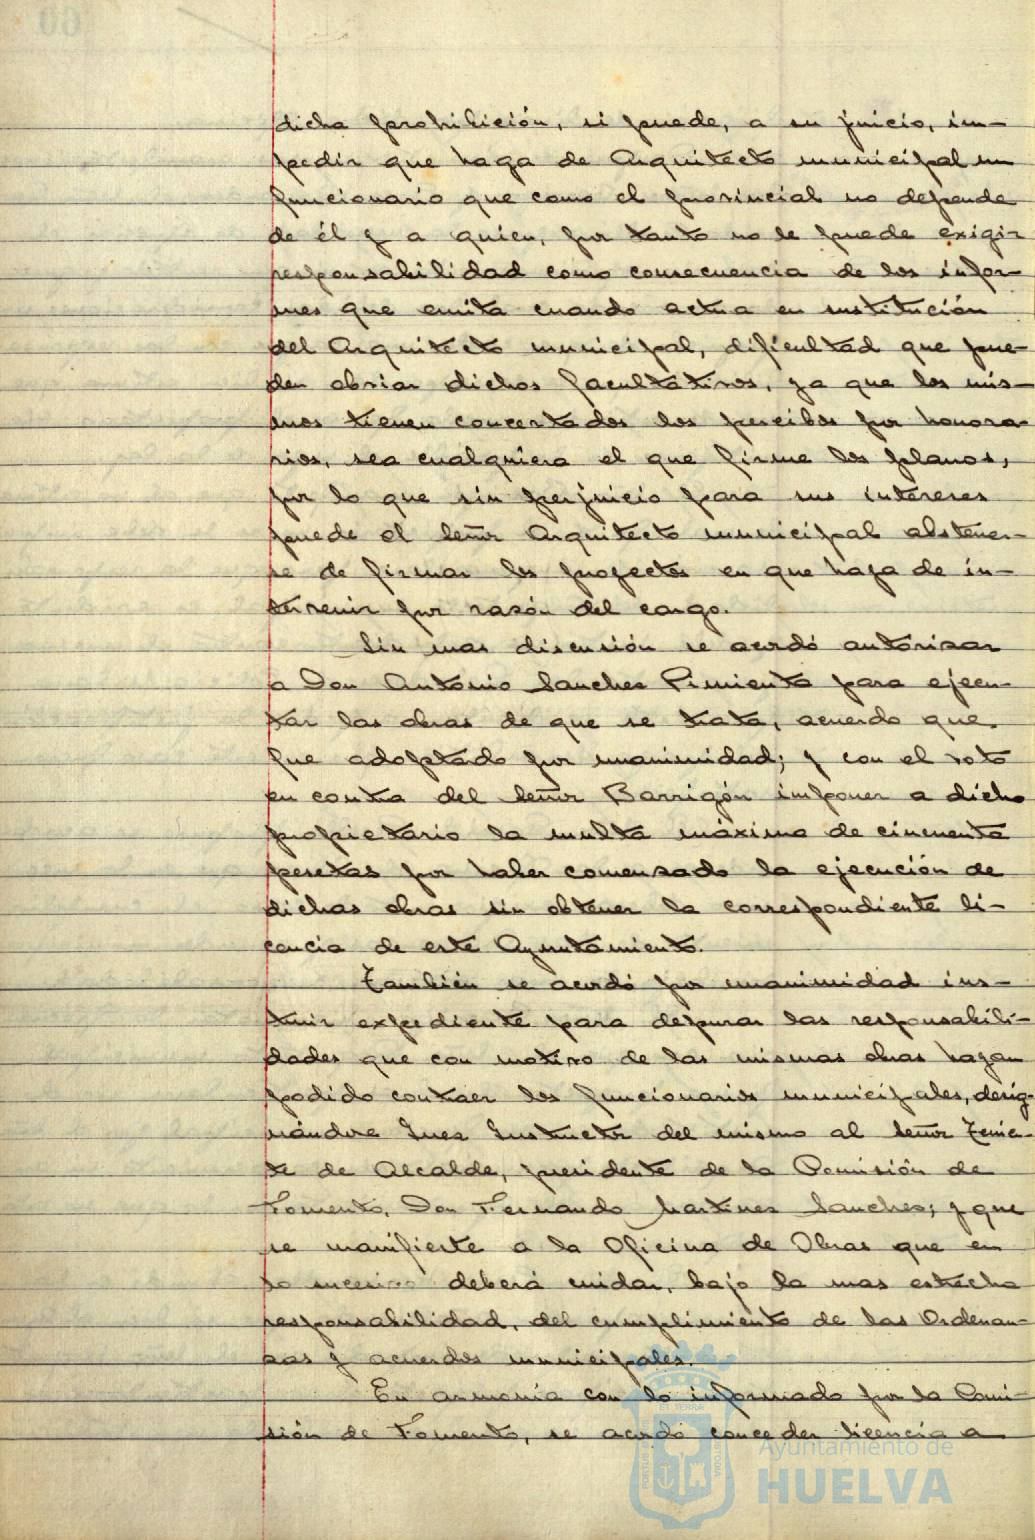 dicha prohibición, si puede, a su juicio, im-
pedir que haga de Arquitecto municipal un
funcionario que como el provincial no depende
de él y a quien, por tanto no se puede exigir
responsabilidad como consecuencia de los infor-
mes que emita cuando actua en sustitución
del Arquitecto municipal, dificultad que pue-
den obviar dichos facultativos, ya que los mis-
mos tienen concertados los percibos por honora-
rios, sea cualquiera el que firme los planos,
por lo que sin perjuicio para sus intereses
puede el señor Arquitecto municipal abstener-
se de firmar los proyectos en que haya de in-
tervenir por razón del cargo.
Sin mas discusión se acordó autorizar
a Don Antonio Sanchez Pimienta para ejecu-
tar las obras de que se trata, acuerdo que
fue adoptado por unanimidad; y con el voto
en contra del señor Barrigón imponer a dicho
propietario la multa máxima de cincuenta
pesetas por haber comenzado la ejecución de
dichas obras sin obtener la correspondiente li-
cencia de este Ayuntamiento.
También se acordó por unanimidad ins-
truir expediente para depurar las responsabili-
dades que con motivo de las mismas obras hayan
podido contraer los funcionarios municipales, desig-
nándose Juez Instructor del mismo al señor Tenien-
te de Alcalde, presidente de la Comisión de
Fomento, Don Fernando Martinez Sanchez; y que
se manifieste a la Oficina de Obras que en
lo sucesivo deberá cuidar, bajo la mas estrecha
responsabilidad, del cumplimiento de las Ordenan-
zas y acuerdos municipales.
En armonía con lo informado por la Comi-
sión de Fomento, se acordó conceder licencia a
Ayuntamiento de
HUELVA